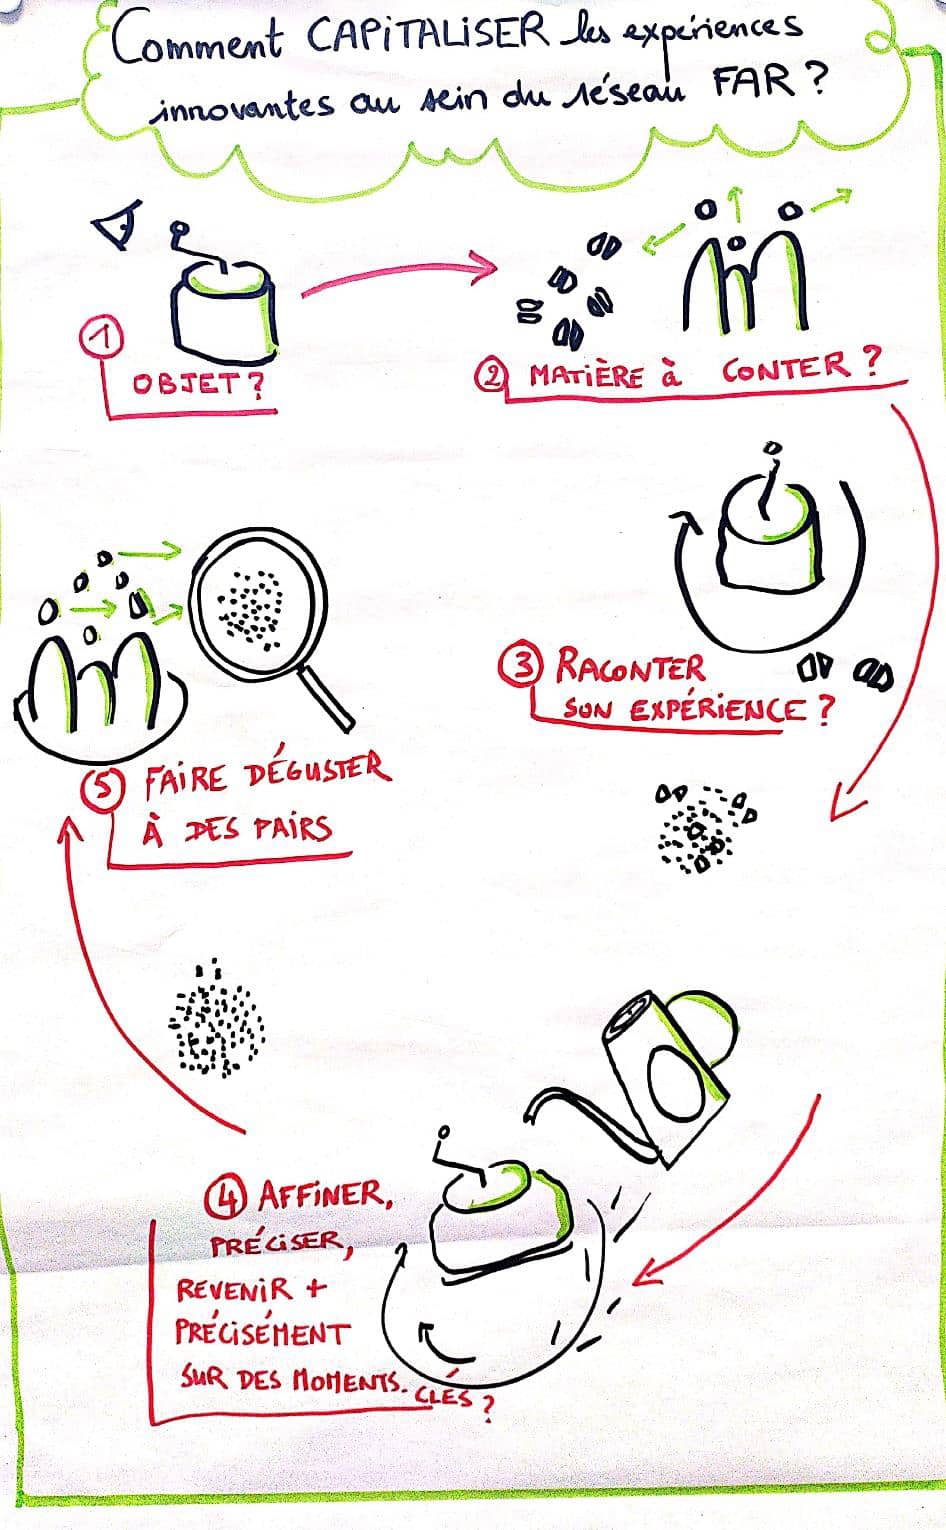 Comment CAPiTALiSER les expériences
innovantes au sein du réseau FAR ?
1
OBJET ?
2 MATIÈRE à CONTER ?
3 RACONTER
SON EXPÉRiENCE ?
5 FAiRE DÉGUSTER
À DES PAiRS
4 AFFiNER,
PRÉCiSER,
REVENiR +
PRÉCiSÉMENT
SUR DES MOMENTS. CLÉS ?